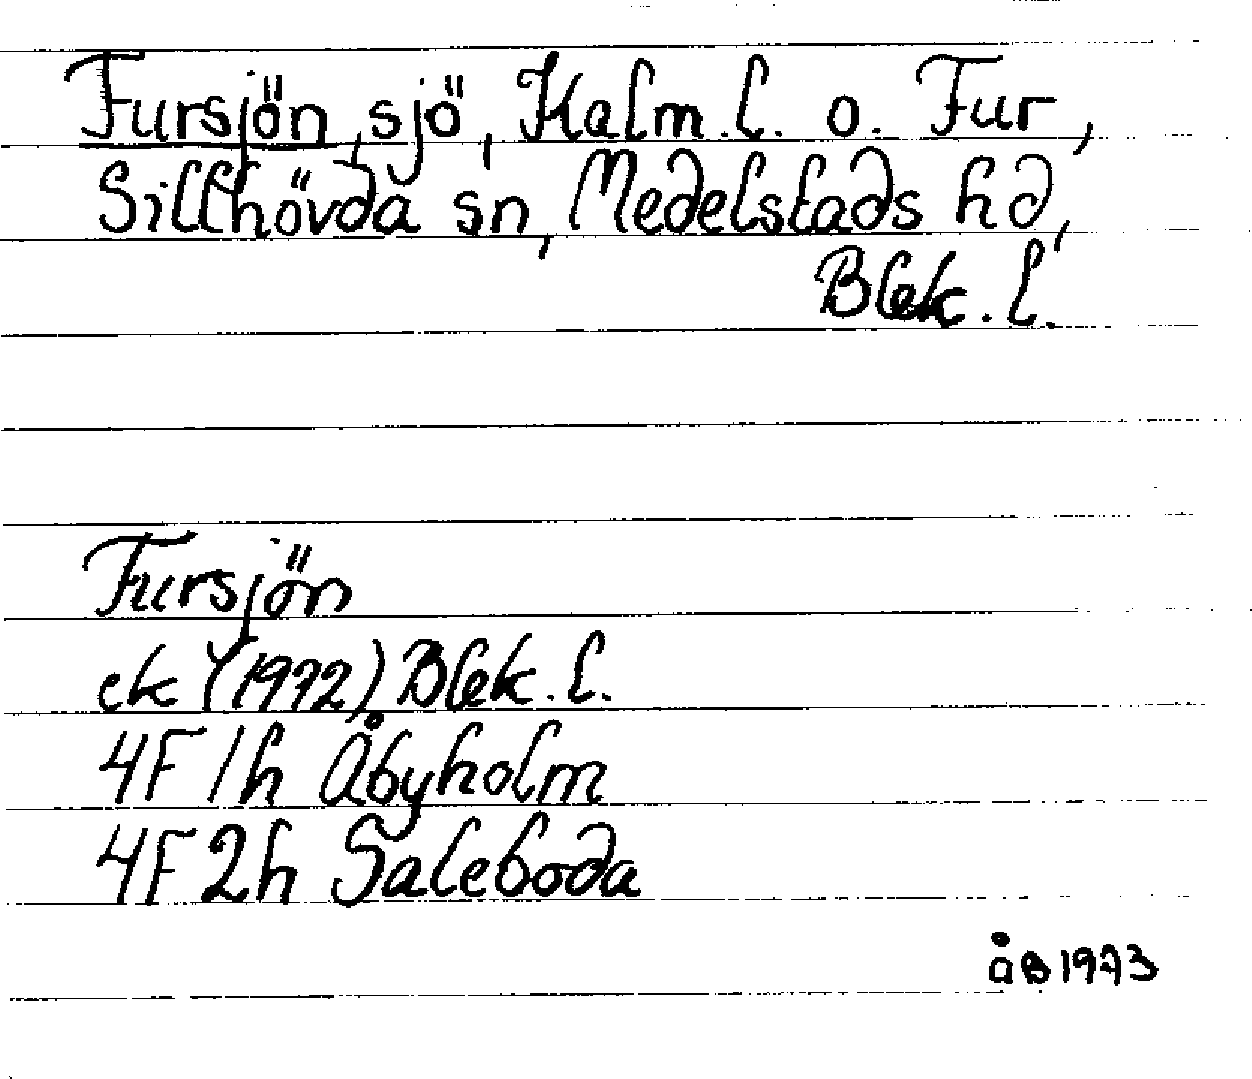 Fursjön, sjö, Kalm. l. o. Fur,
Sillhövda sn, Medelstads hd,
Blek. l.
Fursjön
ek (1972) Blek. l.
4F 1h Åbyholm
4F 2h Saleboda
åB 1973